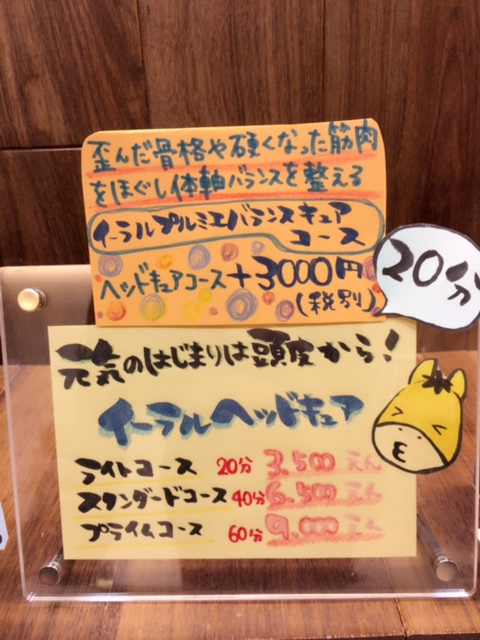 歪んだ骨格や硬くなった筋肉
をほぐし体軸バランスを整える
イーラルプルミエバランスキュア
コース
ヘッドキュアコース+3000円
(税別)
20分
元気のはじまりは頭皮から!
イーラルヘッドキュア
ライトコース 20分 3,500えん
スタンダードコース 40分 6,500えん
プライムコース 60分 9,000えん